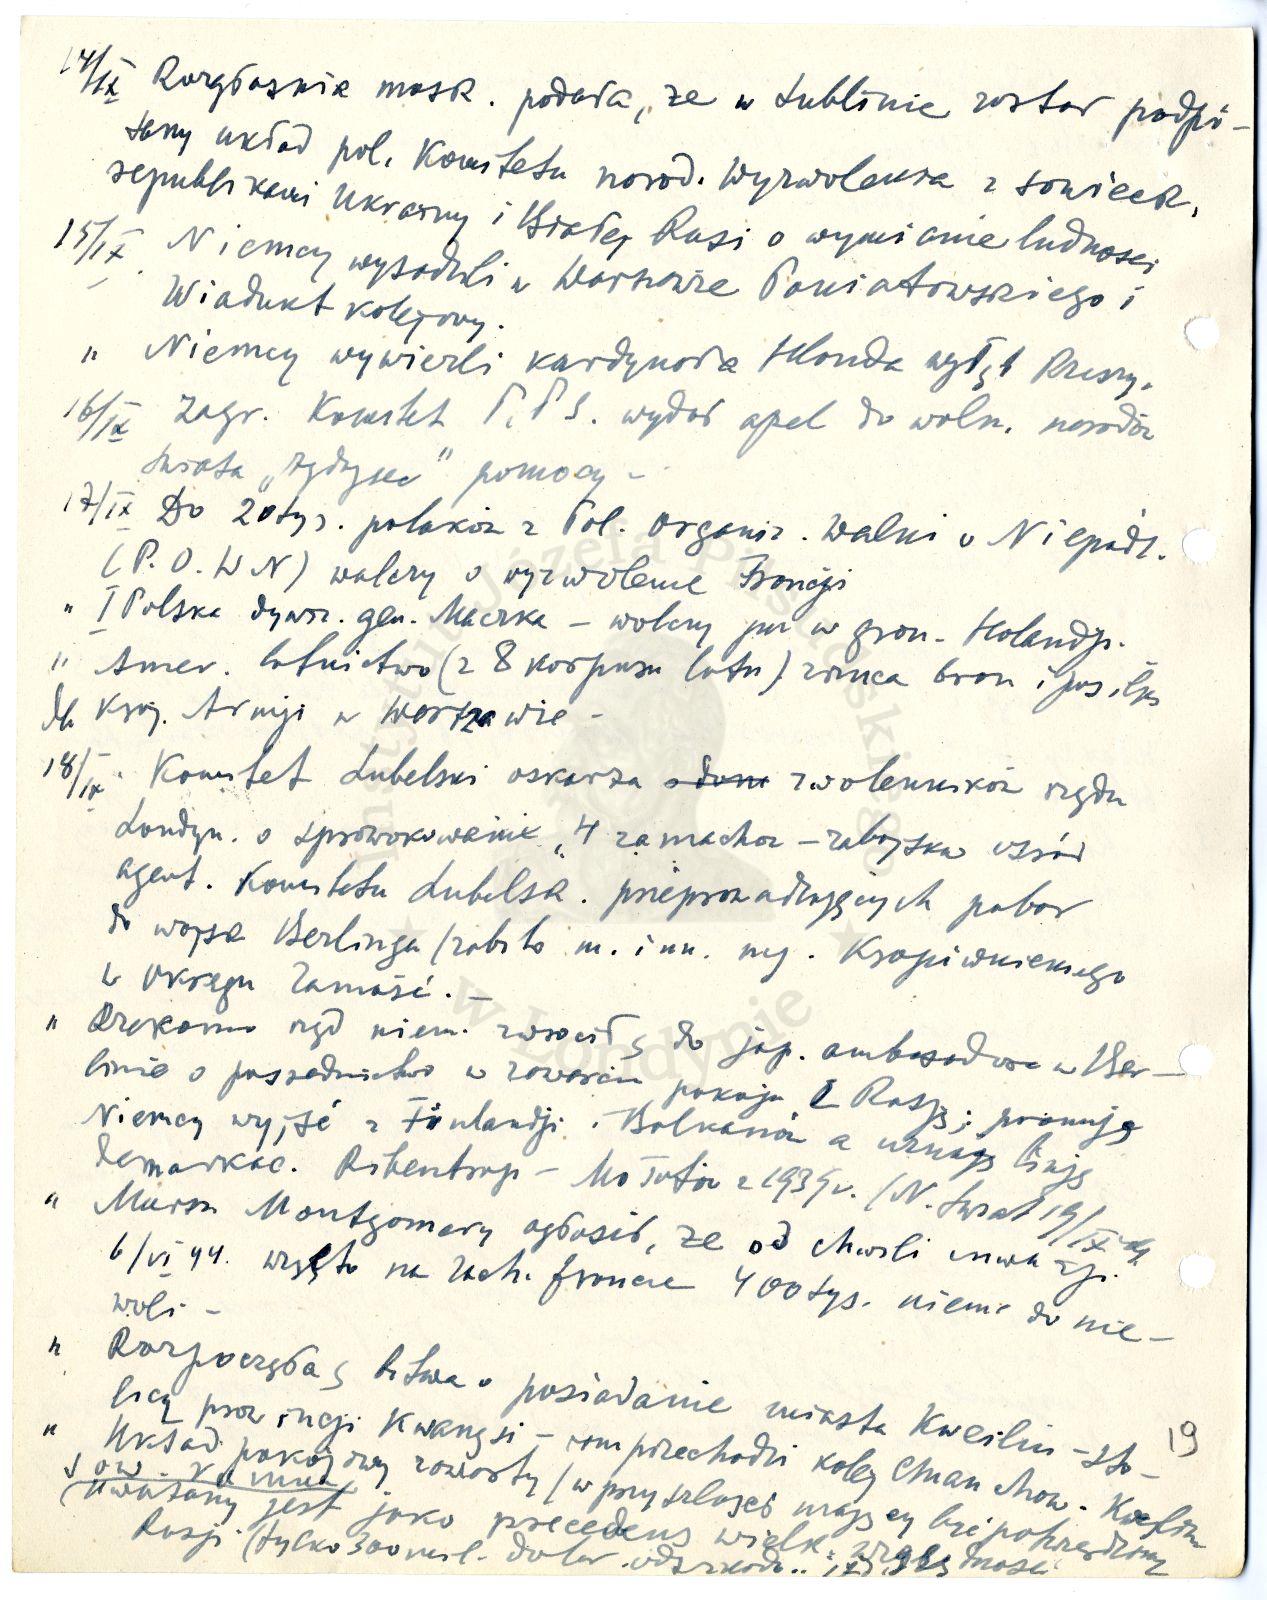 14/IX Rozgłośnia mosk. podała, że w Lublinie został podpi-
sany układ pol. Komitetu narod. Wyzwolenia z sowieck.
republikami Ukrainy i Białej Rusi o wymianie ludności
15/IX Niemcy wysadzili w Warszawie Poniatowskiego i
Wiadukt kolejowy.
" Niemcy wywieźli kardynała Hlonda wgłąb Rzeszy.
16/IX Zagr. Komitet P.P.S. wydał apel do woln. narodów
świata „żądając" pomocy –
17/IX Do 20 tys. polaków z Pol. Organiz. Walki o Niepodl.
(P.O.W N) walczy o wyzwolenie Francji
" I Polska dywiz. gen. Maczka – walczy już w gran. Holandji.
" Amer. lotnictwo (z 8 korpusu lotn) zrzuca broń i posiłki
dla Kraj. Armji w Warszawie –
18/IX. Komitet Lubelski oskarża zwolenników rządu
Londyn. o sprowokowanie „4 zamachów – zabójstw wśród
agent. Komitetu Lubelsk. przeprowadzających pobór
do wojsk Berlinga (zabito m. i nn. mj. Krapiwnickiego
w Okręgu Zamość. –
" Rzekomo rząd niem. zwrócił ś do jap. ambasadora w Ber-
linie o pośrednictwo w zawarciu pokoju z Rosją; proponują
Niemcy wyjść z Finlandji i Bałkanów a uznają linję
demarkac. Ribentrop – Mołotów z 1939 r. (N. Świat 19/IX
" Marsz Montgomery ogłosił, że od chwili inwazji
6/VI 44. wzięto na zach. froncie 400 tys. niem. do nie-
woli –
" Rozpoczęła ś bitwa o posiadanie miasta Kweilin – sto-
licy prowincji Kwangsi – tam przechodzi kolej
" Układ pokojowy zawarty (w przyszłości mający być potwierdzony
sow. – rumuń
(uważany jest jako precedens wielk. względności
Rosji (tylko 300 mil. dolar. odszkod..
19
Instytut Józefa Piłsudskiego
w Londynie